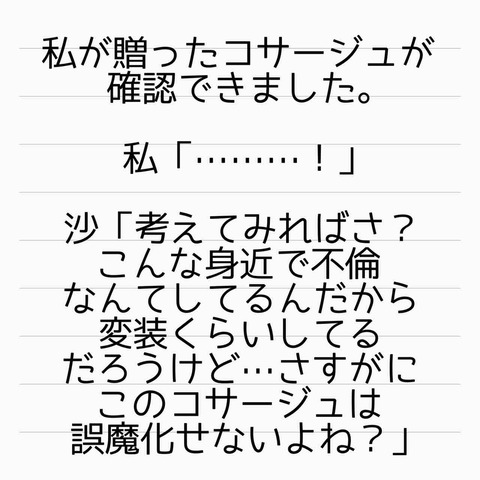 私が贈ったコサージュが
確認できました。
私「………！」
沙「考えてみればさ？
こんな身近で不倫
なんてしてるんだから
変装くらいしてる
だろうけど…さすがに
このコサージュは
誤魔化せないよね？」